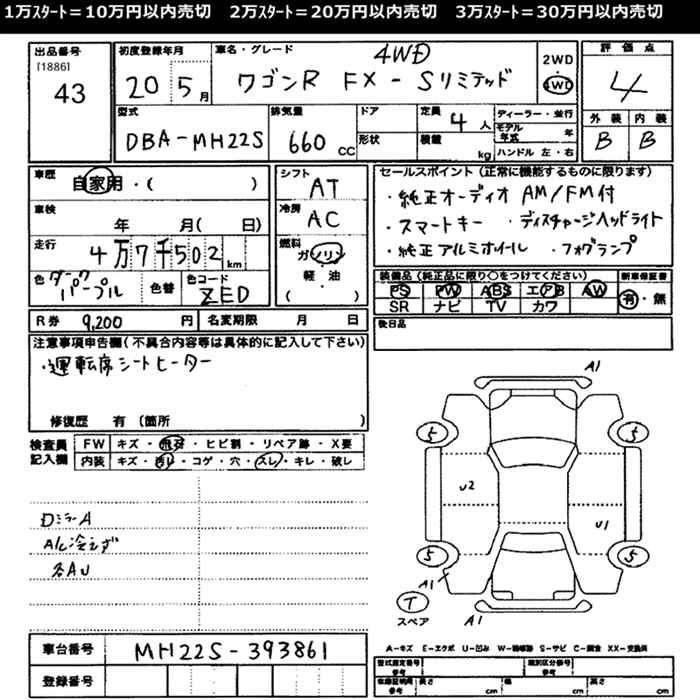 1万スタート=10万円以内売切 2万スタート=20万円以内売切 3万スタート=30万円以内売切
出品番号 初度登録年月 車名・グレード 評価点
[1886] 4WD 2WD
43 20 5月 ワゴンR FX-Sリミテッド 4WD 4
型式 排気量 ドア 定員 4人 ディーラー・並行 外装 内装
DBA-MH22S 660 CC 形状 積載 kg モデル年式 年 B B
ハンドル 左・右
車歴 自家用・( ) シフト AT セールスポイント (正常に機能するものに限ります)
車検 年 月( 日) 冷房 AC ・純正オーディオ AM/FM付
・スマートキー ・ディスチャージヘッドライト
走行 4万7千502km 燃料 ガソリン ・純正アルミホイール ・フォグランプ
軽・油
( )
色 ダークパープル 色替 色コード ZED 装備品(純正品に限り○をつけてください) 新車保証書
PS PW ABS エアB AW 有・無
SR ナビ TV カワ
R券 9,200円 名変期限 月 日 後日品
注意事項申告欄(不具合内容等は具体的に記入して下さい)
・運転席シートヒーター
修復歴 有 (箇所 )
検査員記入欄 FW キズ・飛石・ヒビ割・リペア跡・X要
内装 キズ・汚レ・コゲ・穴・スレ・キレ・破レ
DミラーA
A/C冷えず
各AU
A1
5 5
U2 U1
5 5
A1
T
スペア A1
車台番号 MH22S-393861
登録番号
A-キズ E-エクボ U-凹み W-補修跡 S-サビ C-腐食 XX-交換済
型式指定番号 参考 類別区分番号 参考
車庫証明用 参考 長さ cm 幅 cm 高さ cm